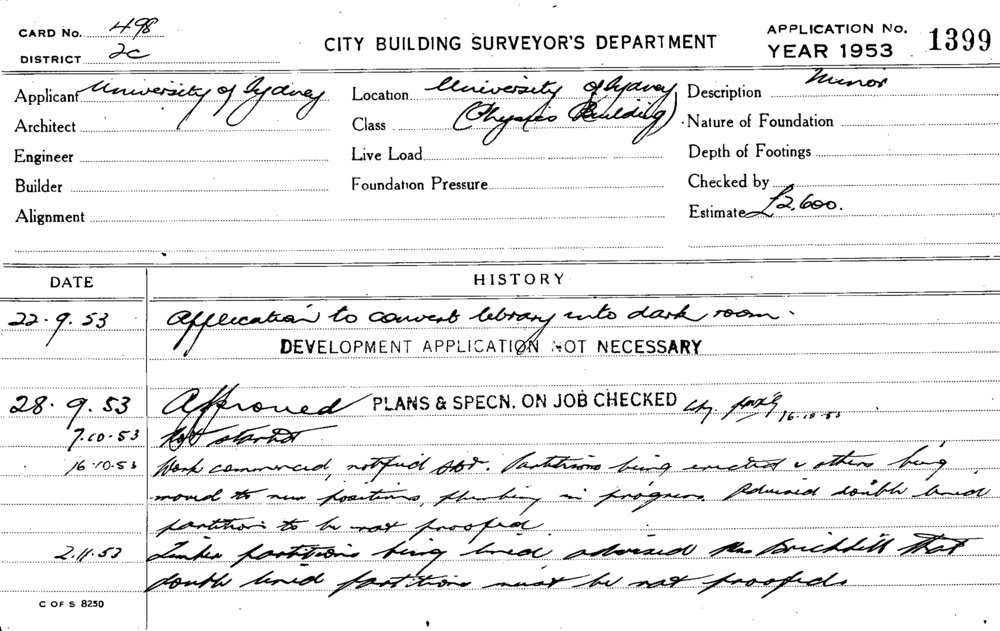 CARD No. 498
DISTRICT 2c
CITY BUILDING SURVEYOR'S DEPARTMENT
APPLICATION No.
YEAR 1953
1399
Applicant University of Sydney
Architect
Engineer
Builder
Alignment
Location University of Sydney
Class (Physics Building)
Live Load
Foundation Pressure
Description Minor
Nature of Foundation
Depth of Footings
Checked by
Estimate £2,600.
DATE HISTORY
22.9.53 Application to convert library into dark room.
DEVELOPMENT APPLICATION NOT NECESSARY
28.9.53 Approved PLANS & SPECN. ON JOB CHECKED 16.10.53
7.10.53 Not started
16.10.53 Work commenced, notified. Partitions being erected & others being
moved to new positions, plumbing in progress. Advised double lined
partition to be rat proofed
2.11.53 Timber partitions being lined advised that
double lined partitions must be rat proofed
C OF S 8250